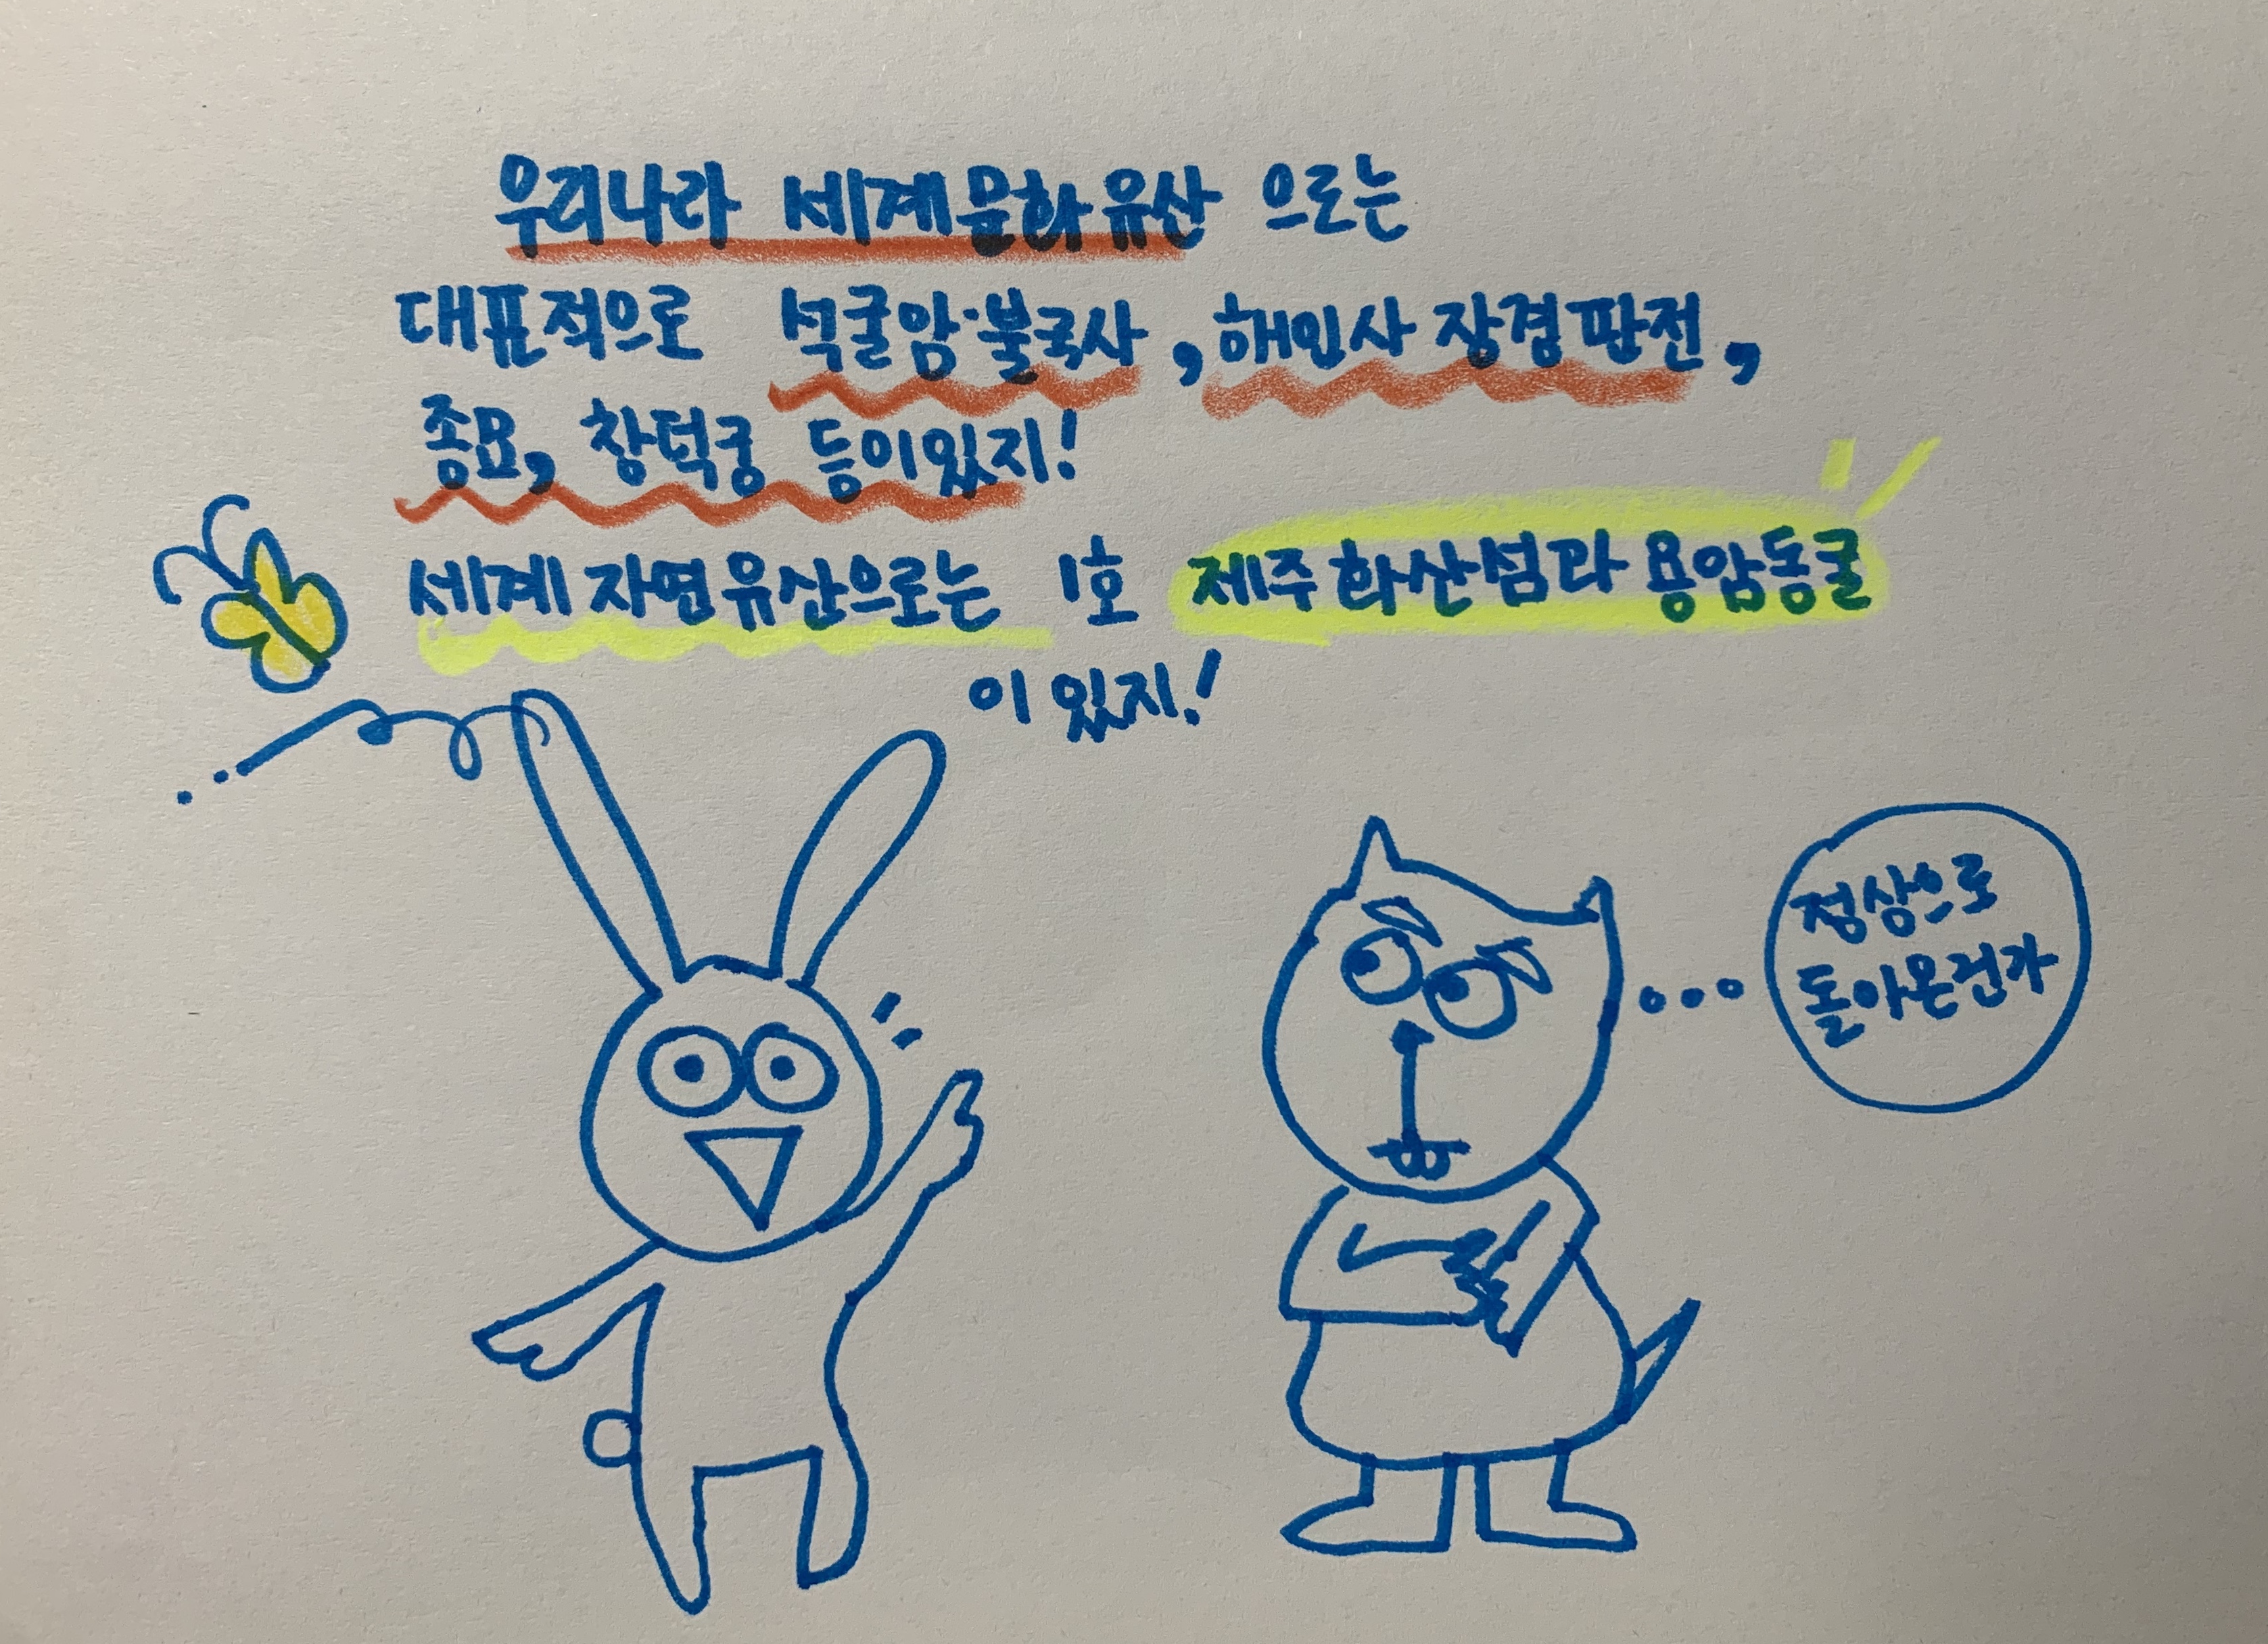 우리나라 세계문화유산 으로는
대표적으로 석굴암·불국사, 해인사 장경판전,
종묘, 창덕궁 등이있지!
세계자연유산으로는 1호 제주화산섬과 용암동굴
이 있지!
정상으로
돌아온건가